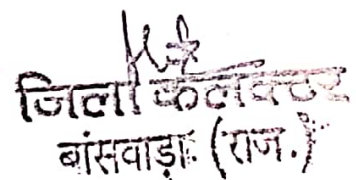 जिला कलेक्टर
बांसवाड़ा (राज.)